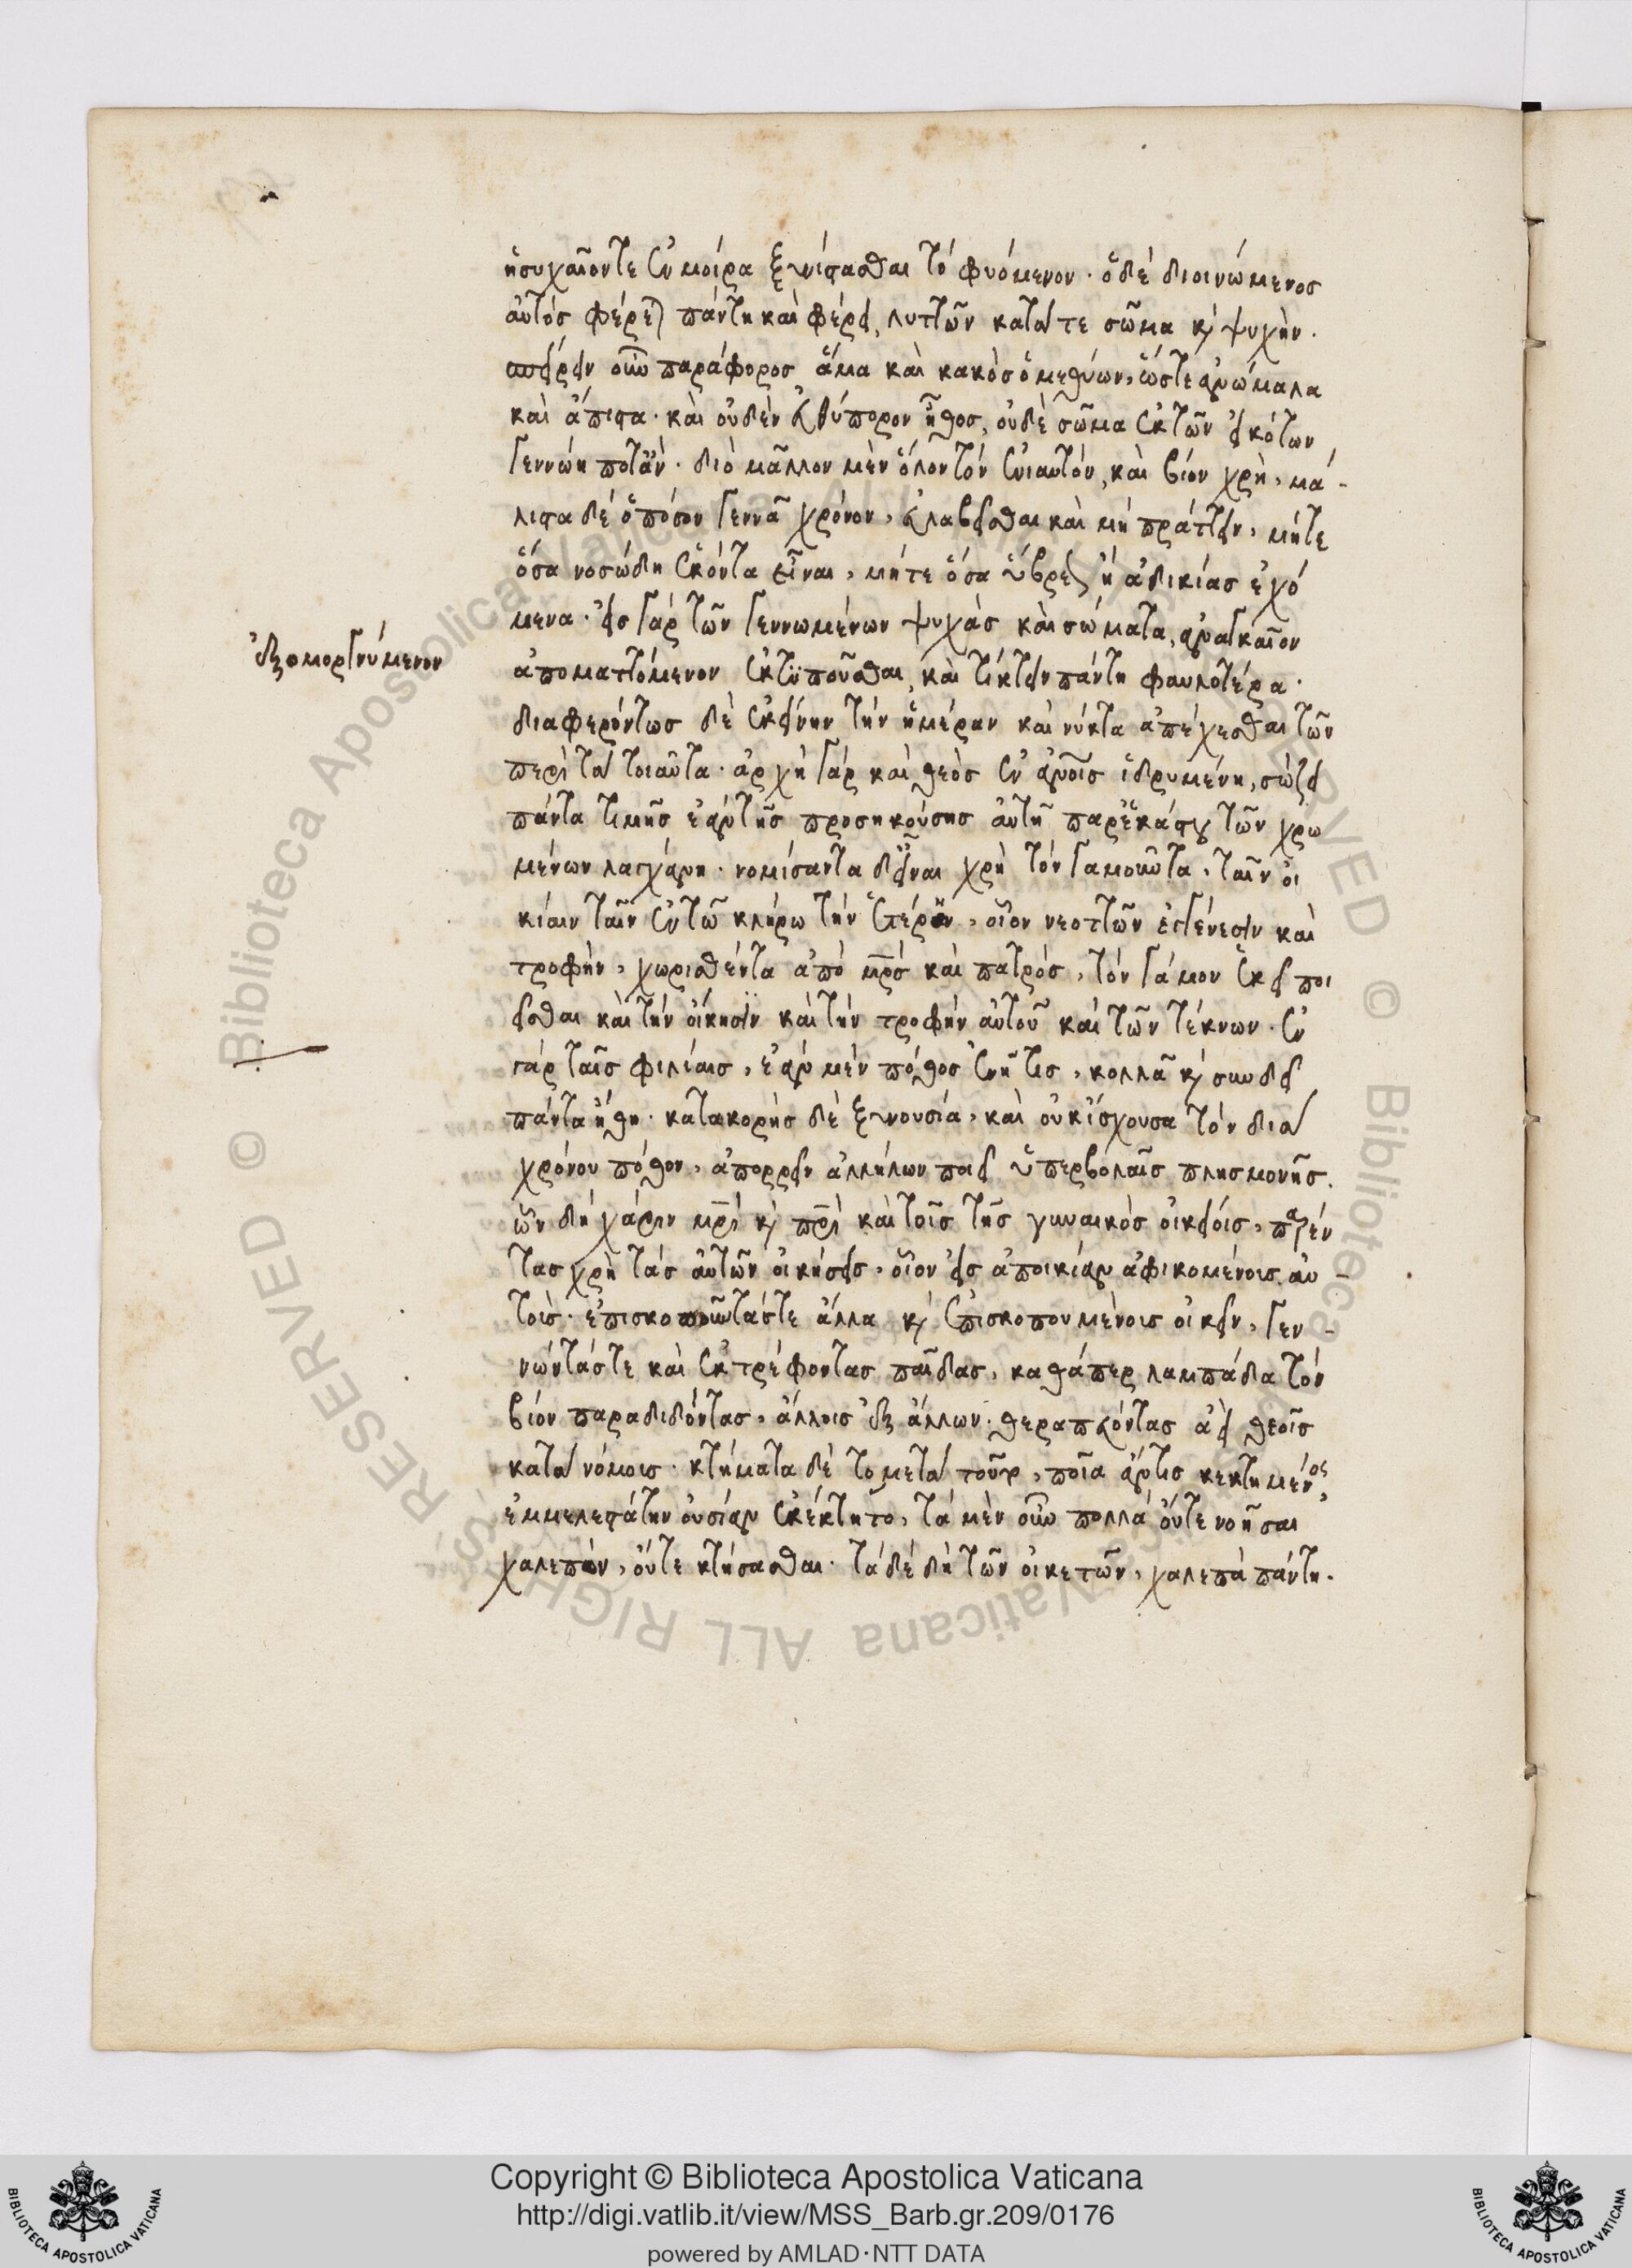 ἡσυχαῖόντε ἐν μοίρα ξυνίστασθαι τὸ φυόμενον· ὁ δὲ διοινώμενος
αὐτός φέρεται πάντη καὶ φέρει, λυττῶν κατά τε σῶμα καὶ ψυχὴν.
σπείρειν οὖν παράφορος ἅμα καὶ κακὸς ὁ μεθύων, ὥστε ἀνώμαλα
καὶ ἄπιστα· καὶ οὐδὲν εὐθύπορον ἦθος, οὐδὲ σῶμα ἐκ τῶν εἰκότων
γεννώη ποτἂν· διὸ μᾶλλον μὲν ὅλον τὸν ἐνιαυτόν, καὶ βίον χρὴ, μά-
λιστα δὲ ὁπόσον γεννᾶ χρόνον, εὐλαβεῖσθαι καὶ μὴ πράττειν, μήτε
ὅσα νοσώδη ἑκόντα εἶναι, μήτε ὅσα ὕβρεως ἢ ἀδικίας ἐχό
μενα· εἰς γὰρ τῶν γεννωμένων ψυχὰς καὶ σώματα, ἀναγκαῖον
ἐξομοργνύμενον
ἀποματτόμενον ἐκτϋποῦσθαι, καὶ τίκτειν πάντη φαυλότερα·
διαφερόντως δὲ ἐκείνην τὴν ἡμέραν καὶ νύκτα ἀπέχεσθαι τῶν
περὶ τὰ τοιαῦτα· ἀρχὴ γὰρ καὶ θεὸς ἐν ἀνοις ἱδρυμένη, σώζει
πάντα τιμῆς ἐὰν τῆς προσηκούσης αὐτῆ παρἑκάστου τῶν χρω
μένων λαγχάνη· νομίσαντα δεἶναι χρὴ τὸν γαμοῦντα, ταῖν οἰ
κίαιν ταῖν ἐν τῶ κλήρω τὴν ἑτέραν, οἷον νεοττῶν ἐγγένεσιν καὶ
τροφὴν, χωρισθέντα ἀπὸ μρς καὶ πατρός, τὸν γάμον ἐκεῖ ποι
εῖσθαι καὶ τὴν οἴκησϊν καὶ τὴν τροφὴν αὐτοῦ καὶ τῶν τέκνων· ἐν
γὰρ ταῖς φιλίαις, ἐὰν μὲν πόθος ἐνῆ τις, κολλᾶ καὶ συνδεῖ
πάντα ἤθη· κατακορὴς δὲ ξυνουσία, καὶ οὐκ ἴσχουσα τὸν διὰ
χρόνου πόθον, ἀπορρεῖν ἀλλήλων ποιεῖ ὑπερβολαῖς πλησμονῆς.
ὧν δὴ χάριν μρὶ καὶ πρὶ καὶ τοῖς τῆς γυναικὸς οἰκείοις, παρέν
τας χρὴ τὰς αὐτῶν οἰκήσεις, οἷον εἰς ἀποικίαν ἀφικομένοις αὐ-
τοὶς· ἐπισκοποῦντάστε ἄλλα καὶ ἐπισκοπουμένοις οἰκεῖν, γεν-
νώντάστε καὶ ἐκτρέφοντας παῖδας, καθάπερ λαμπάδα τὸν
βίον παραδιδόντας, ἄλλοις ἐξ ἄλλων· θεραπεύοντας ἀεὶ θεοῖς
κατὰ νόμοις· κτήματα δὲ το μετὰ τοῦτο, ποῖα ἄν τις κεκτημένος
ἐμμελεστάτην οὐσίαν ἐκέκτητο, τὰ μὲν οὖν πολλὰ οὔτε νοῆσαι
χαλεπὸν, οὔτε κτήσασθαι· τὰ δὲ δὴ τῶν οἰκετῶν, χαλεπὰ πάντη.
Copyright © Biblioteca Apostolica Vaticana
http://digi.vatlib.it/view/MSS_Barb.gr.209/0176
powered by AMLAD·NTT DATA